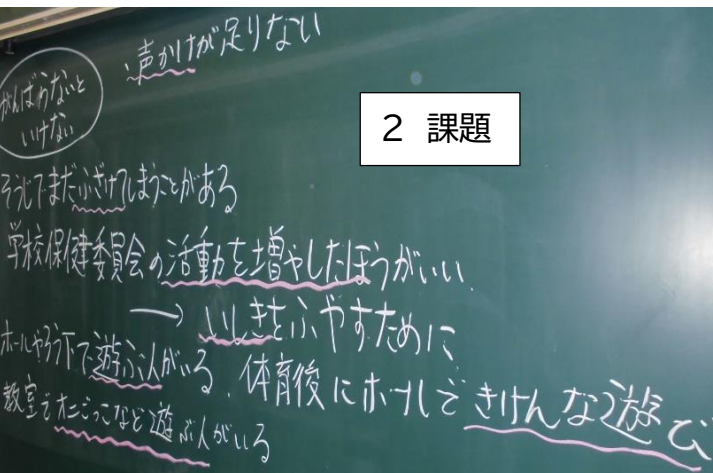 ・声かけが足りない
がんばらないと
いけない
2 課題
そうじでまだふざけてしまうことがある
学校保健委員会の活動を増やしたほうがいい
→ いしきをふやすために
ホールやろう下で遊ぶ人がいる . 体育後にホールできけんな遊び
教室でオニごっこなど遊ぶ人がいる